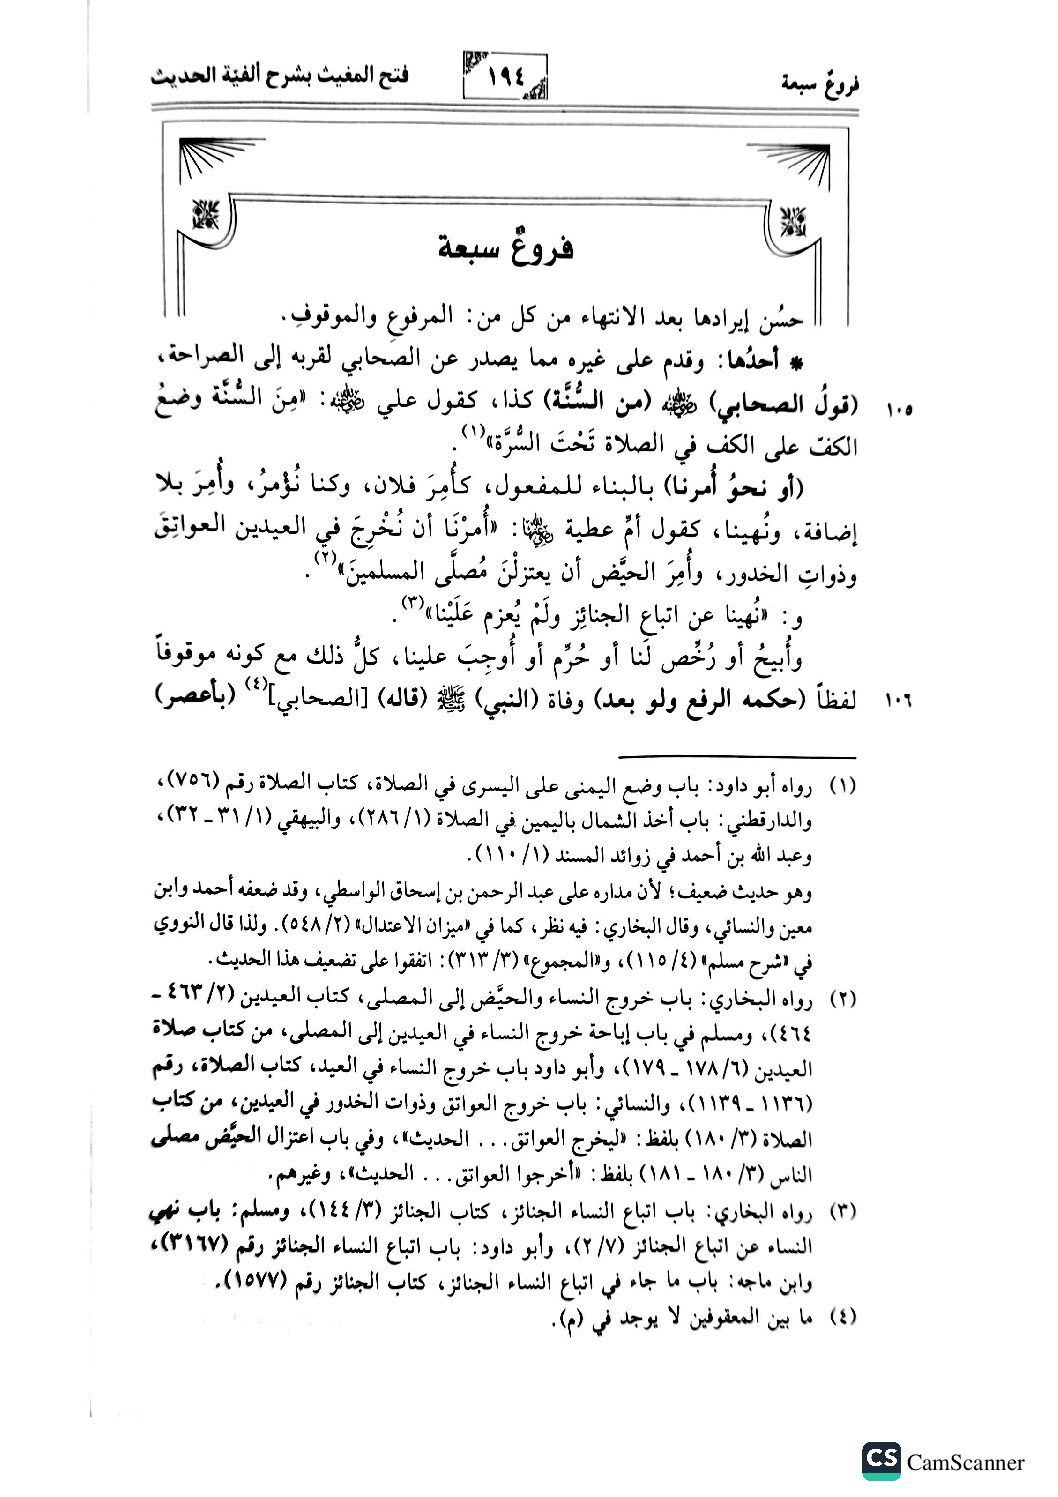 فروعٌ سبعة
١٩٤
فتح المغيث بشرح ألفيّة الحديث
فروعٌ سبعة
حسُن إيرادها بعد الانتهاء من كل من: المرفوعِ والموقوفِ.
* أحدُها: وقدم على غيره مما يصدر عن الصحابي لقربه إلى الصراحة،
١٠٥ (قولُ الصحابي) رضي الله عنه (من السُّنَّة) كذا، كقول علي رضي الله عنه: «مِنَ السُّنَّة وضعُ
الكفّ على الكف في الصلاة تَحْتَ السُّرَّة»(١).
(أو نحوُ أُمرنا) بالبناء للمفعول، كأُمِرَ فلان، وكنا نُؤْمرُ، وأُمِرَ بلا
إضافة، ونُهينا، كقول أمِّ عطية رضي الله عنها: «أُمرْنَا أن نُخْرِجَ في العيدين العواتِقَ
وذواتِ الخدور، وأُمِرَ الحيَّض أن يعتزلْنَ مُصلَّى المسلمينَ»(٢).
و: «نُهينا عن اتباع الجنائِز ولَمْ يُعزم عَلَيْنا»(٣).
وأُبيحُ أو رُخِّص لَنا أو حُرِّم أو أُوجِبَ علينا، كلُّ ذلك مع كونه موقوفاً
١٠٦ لفظاً (حكمه الرفع ولو بعد) وفاة (النبي) ﷺ (قاله) [الصحابي](٤) (بأعصر)
(١) رواه أبو داود: باب وضع اليمنى على اليسرى في الصلاة، كتاب الصلاة رقم (٧٥٦)،
والدارقطني: باب أخذ الشمال باليمين في الصلاة (١/ ٢٨٦)، والبيهقي (١/ ٣١ - ٣٢)،
وعبد الله بن أحمد في زوائد المسند (١/ ١١٠).
وهو حديث ضعيف؛ لأن مداره على عبد الرحمن بن إسحاق الواسطي، وقد ضعفه أحمد وابن
معين والنسائي، وقال البخاري: فيه نظر، كما في «ميزان الاعتدال» (٢/ ٥٤٨). ولذا قال النووي
في «شرح مسلم» (٤/ ١١٥)، و«المجموع» (٣/ ٣١٣): اتفقوا على تضعيف هذا الحديث.
(٢) رواه البخاري: باب خروج النساء والحيَّض إلى المصلى، كتاب العيدين (٢/ ٤٦٣ -
٤٦٤)، ومسلم في باب إباحة خروج النساء في العيدين إلى المصلى، من كتاب صلاة
العيدين (٦/ ١٧٨ - ١٧٩)، وأبو داود باب خروج النساء في العيد، كتاب الصلاة، رقم
(١١٣٦ - ١١٣٩)، والنسائي: باب خروج العواتق وذوات الخدور في العيدين، من كتاب
الصلاة (٣/ ١٨٠) بلفظ: «ليخرج العواتق... الحديث»، وفي باب اعتزال الحيَّض مصلى
الناس (٣/ ١٨٠ - ١٨١) بلفظ: «أخرجوا العواتق... الحديث»، وغيرهم.
(٣) رواه البخاري: باب اتباع النساء الجنائز، كتاب الجنائز (٣/ ١٤٤)، ومسلم: باب نهي
النساء عن اتباع الجنائز (٧/ ٢)، وأبو داود: باب اتباع النساء الجنائز رقم (٣١٦٧)،
وابن ماجه: باب ما جاء في اتباع النساء الجنائز، كتاب الجنائز رقم (١٥٧٧).
(٤) ما بين المعقوفين لا يوجد في (م).
CS CamScanner